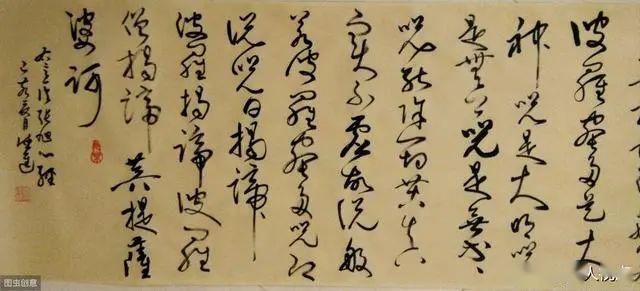 波羅蜜多是大
神咒是大明咒
是無上咒是無等〻
咒能除一切苦真
實不虛故說般
若波羅蜜多咒即
說咒曰揭諦〻
波羅揭諦波羅
僧揭諦菩提薩
婆訶
張旭心經
图虫创意